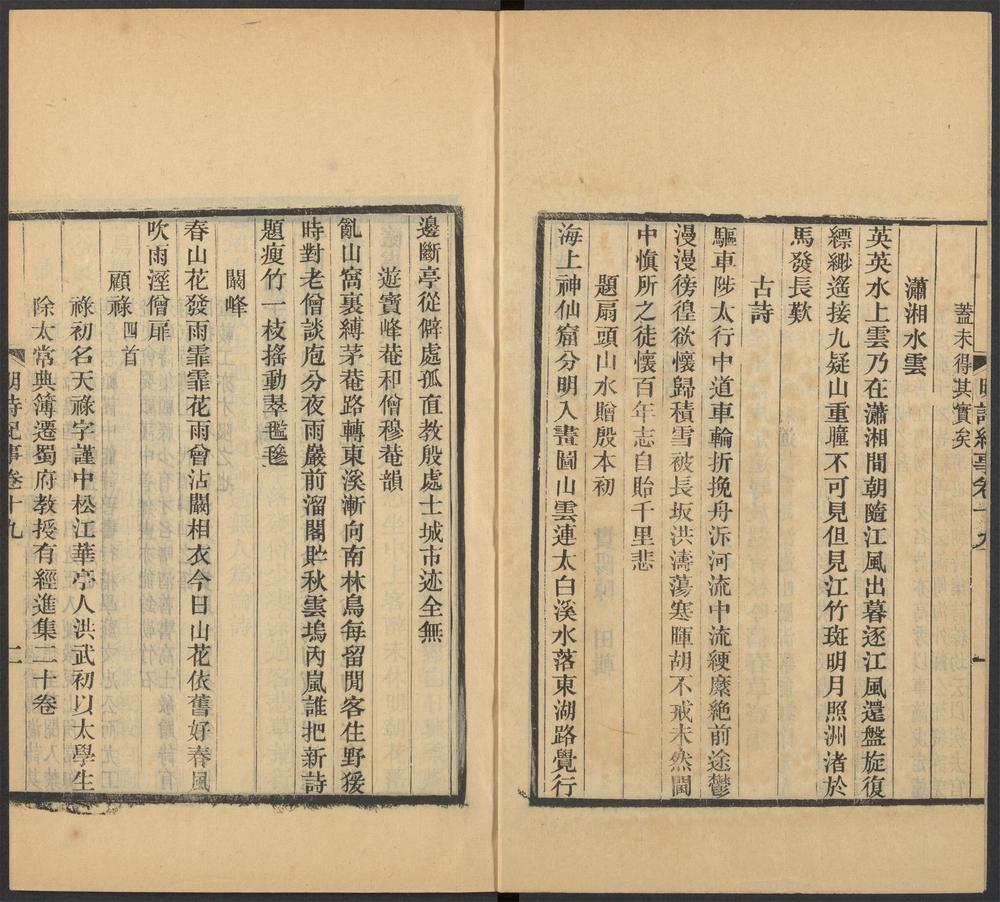 明詩紀事卷十九 一
蓋未得其實矣
瀟湘水雲
英英水上雲乃在瀟湘間朝隨江風出暮逐江風還盤旋復
縹緲遙接九疑山重瞳不可見但見江竹斑明月照洲渚於
馬發長歎
古詩
驅車陟太行中道車輪折挽舟泝河流中流綆縻絕前途鬱
漫漫徬徨欲懷歸積雪被長坂洪濤蕩寒暉胡不戒未然閫
中愼所之徒懷百年志自貽千里悲
題扇頭山水贈殷本初
海上神仙窟分明入畫圖山雲連太白溪水落東湖路覺行
邊斷亭從僻處孤直教殷處士城市迹全無
遊寶峰菴和僧穆菴韻
亂山窩裏縛茅菴路轉東溪漸向南林鳥每留閒客住野猨
時對老僧談庖分夜雨巖前溜閣貯秋雲塢內嵐誰把新詩
題瘦竹一枝搖動翠𣯶毿
闕峰
春山花發雨霏霏花雨曾沾闕相衣今日山花依舊好春風
吹雨溼僧扉
顧祿四首
祿初名天祿字謹中松江華亭人洪武初以太學生
除太常典簿遷蜀府教授有經進集二十卷
明詩紀事卷十九 二